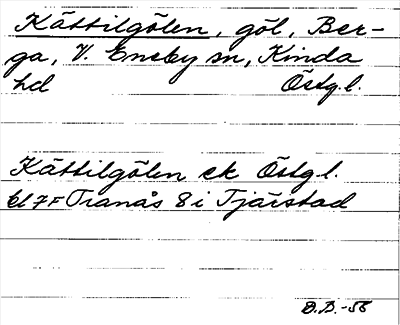 Kättilgölen, göl, Ber-
ga, V. Eneby sn, Kinda
hd Östg.l.
Kättilgölen ek Östg.l.
bl 7F Tranås 8 i Tjärstad
D.B.-56